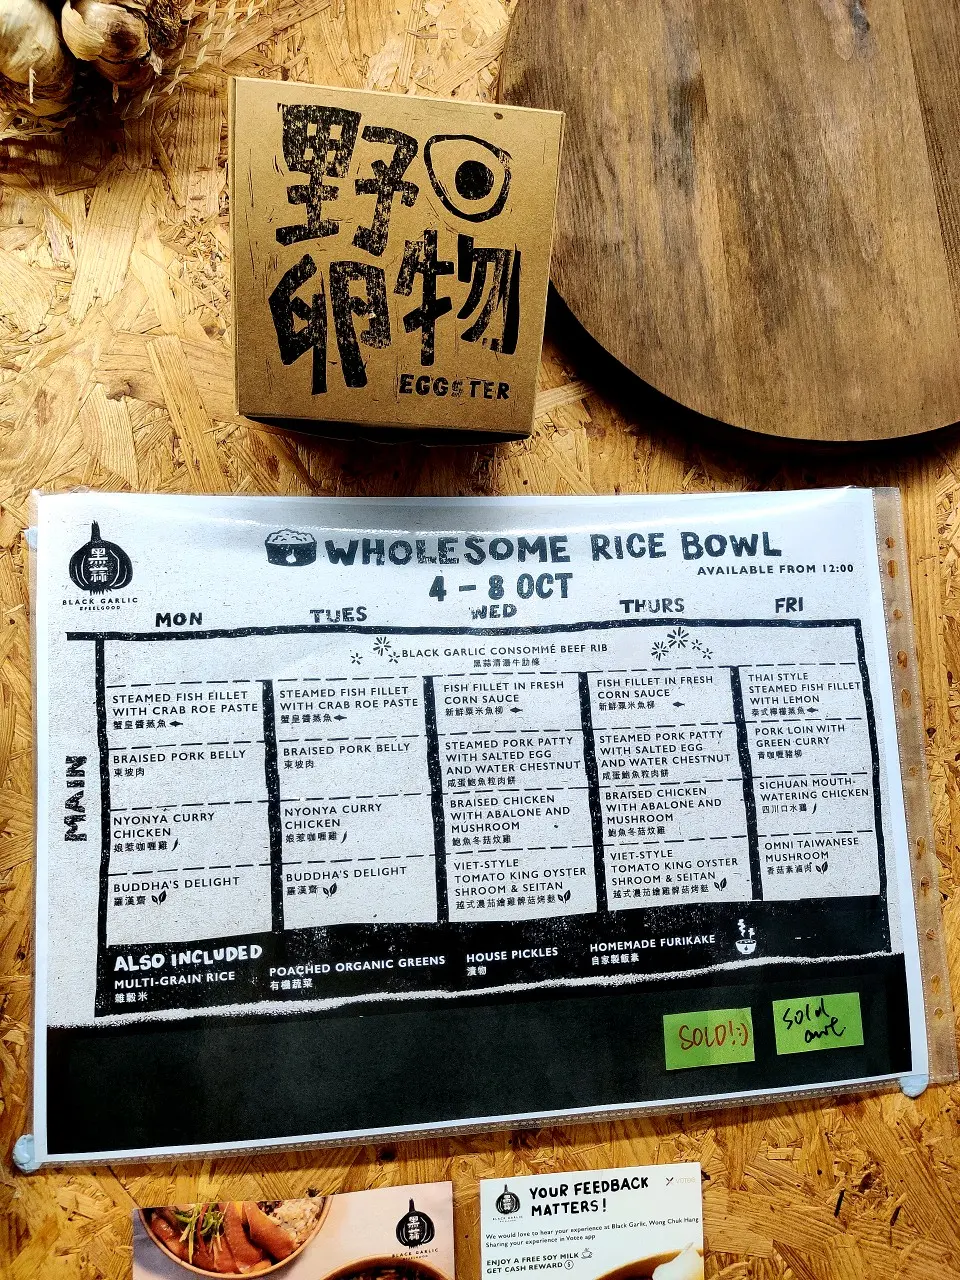 野
卵物
EGGSTER
黑蒜
BLACK GARLIC
#FEELGOOD
WHOLESOME RICE BOWL
AVAILABLE FROM 12:00
4 - 8 OCT
MON
TUES
WED
THURS
FRI
BLACK GARLIC CONSOMMÉ BEEF RIB
黑蒜清湯牛肋條
MAIN
STEAMED FISH FILLET
WITH CRAB ROE PASTE
蟹皇醬蒸魚
STEAMED FISH FILLET
WITH CRAB ROE PASTE
蟹皇醬蒸魚
FISH FILLET IN FRESH
CORN SAUCE
新鮮粟米魚柳
FISH FILLET IN FRESH
CORN SAUCE
新鮮粟米魚柳
THAI STYLE
STEAMED FISH FILLET
WITH LEMON
泰式檸檬蒸魚
BRAISED PORK BELLY
東坡肉
BRAISED PORK BELLY
東坡肉
STEAMED PORK PATTY
WITH SALTED EGG
AND WATER CHESTNUT
咸蛋鮑魚粒肉餅
STEAMED PORK PATTY
WITH SALTED EGG
AND WATER CHESTNUT
咸蛋鮑魚粒肉餅
PORK LOIN WITH
GREEN CURRY
青咖喱豬柳
NYONYA CURRY
CHICKEN
娘惹咖喱雞
NYONYA CURRY
CHICKEN
娘惹咖喱雞
BRAISED CHICKEN
WITH ABALONE AND
MUSHROOM
鮑魚冬菇炆雞
BRAISED CHICKEN
WITH ABALONE AND
MUSHROOM
鮑魚冬菇炆雞
SICHUAN MOUTH-
WATERING CHICKEN
四川口水雞
BUDDHA'S DELIGHT
羅漢齋
BUDDHA'S DELIGHT
羅漢齋
VIET-STYLE
TOMATO KING OYSTER
SHROOM & SEITAN
越式濃茄燴雞髀菇烤麩
VIET-STYLE
TOMATO KING OYSTER
SHROOM & SEITAN
越式濃茄燴雞髀菇烤麩
OMNI TAIWANESE
MUSHROOM
香菇素滷肉
ALSO INCLUDED
MULTI-GRAIN RICE
雜穀米
POACHED ORGANIC GREENS
有機蔬菜
HOUSE PICKLES
漬物
HOMEMADE FURIKAKE
自家製飯素
SOLD! :)
Sold
out
黑蒜
BLACK GARLIC
YOUR FEEDBACK
MATTERS!
VOTEE
We would love to hear your experience at Black Garlic, Wong Chuk Hang
Sharing your experience in Votee app
ENJOY A FREE SOY MILK
GET CASH REWARD $